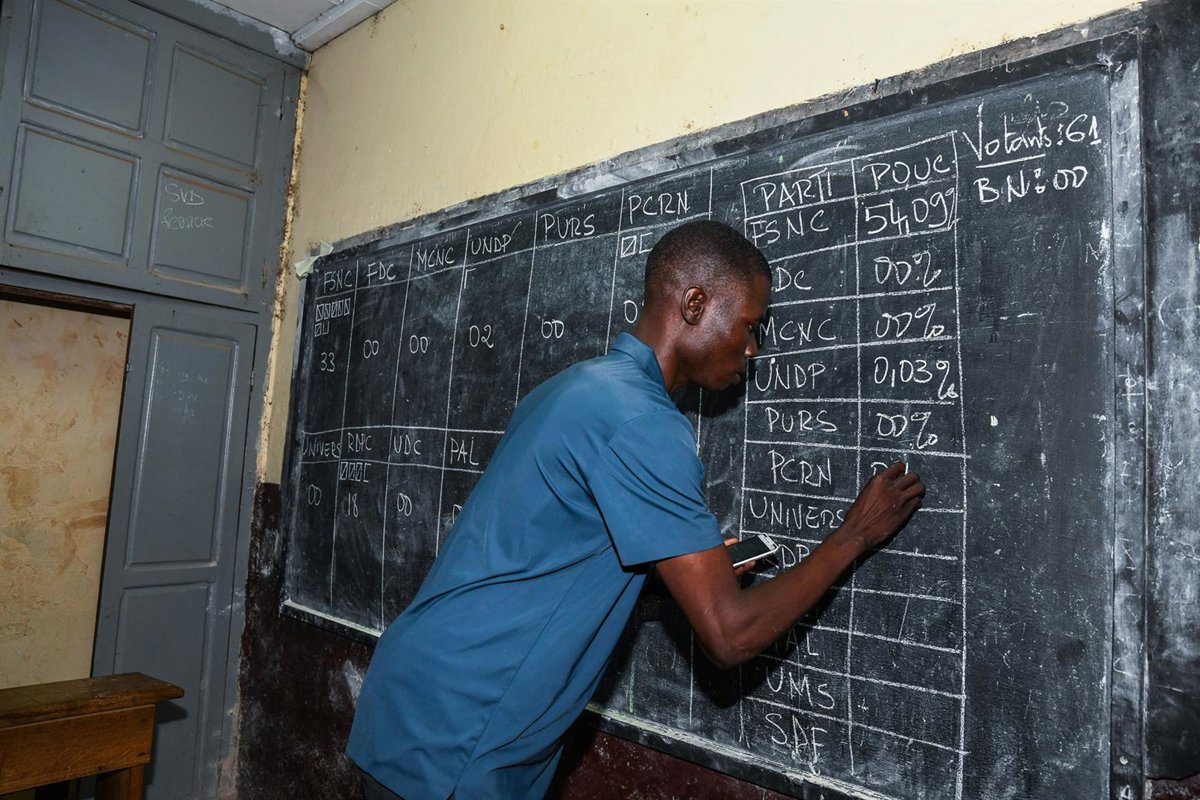 SVD
FSNC FDC MCNC UNDP PURS PCRN
33 00 00 02 00
UNIVERS RDPC UDC PAL
00 18 00
PARTI POUC
FSNC 54,09%
DC 00%
MCNC 00%
UNDP 0,03%
PURS 00%
PCRN
UNIVERS
UMS
Votants: 61
BN: 00